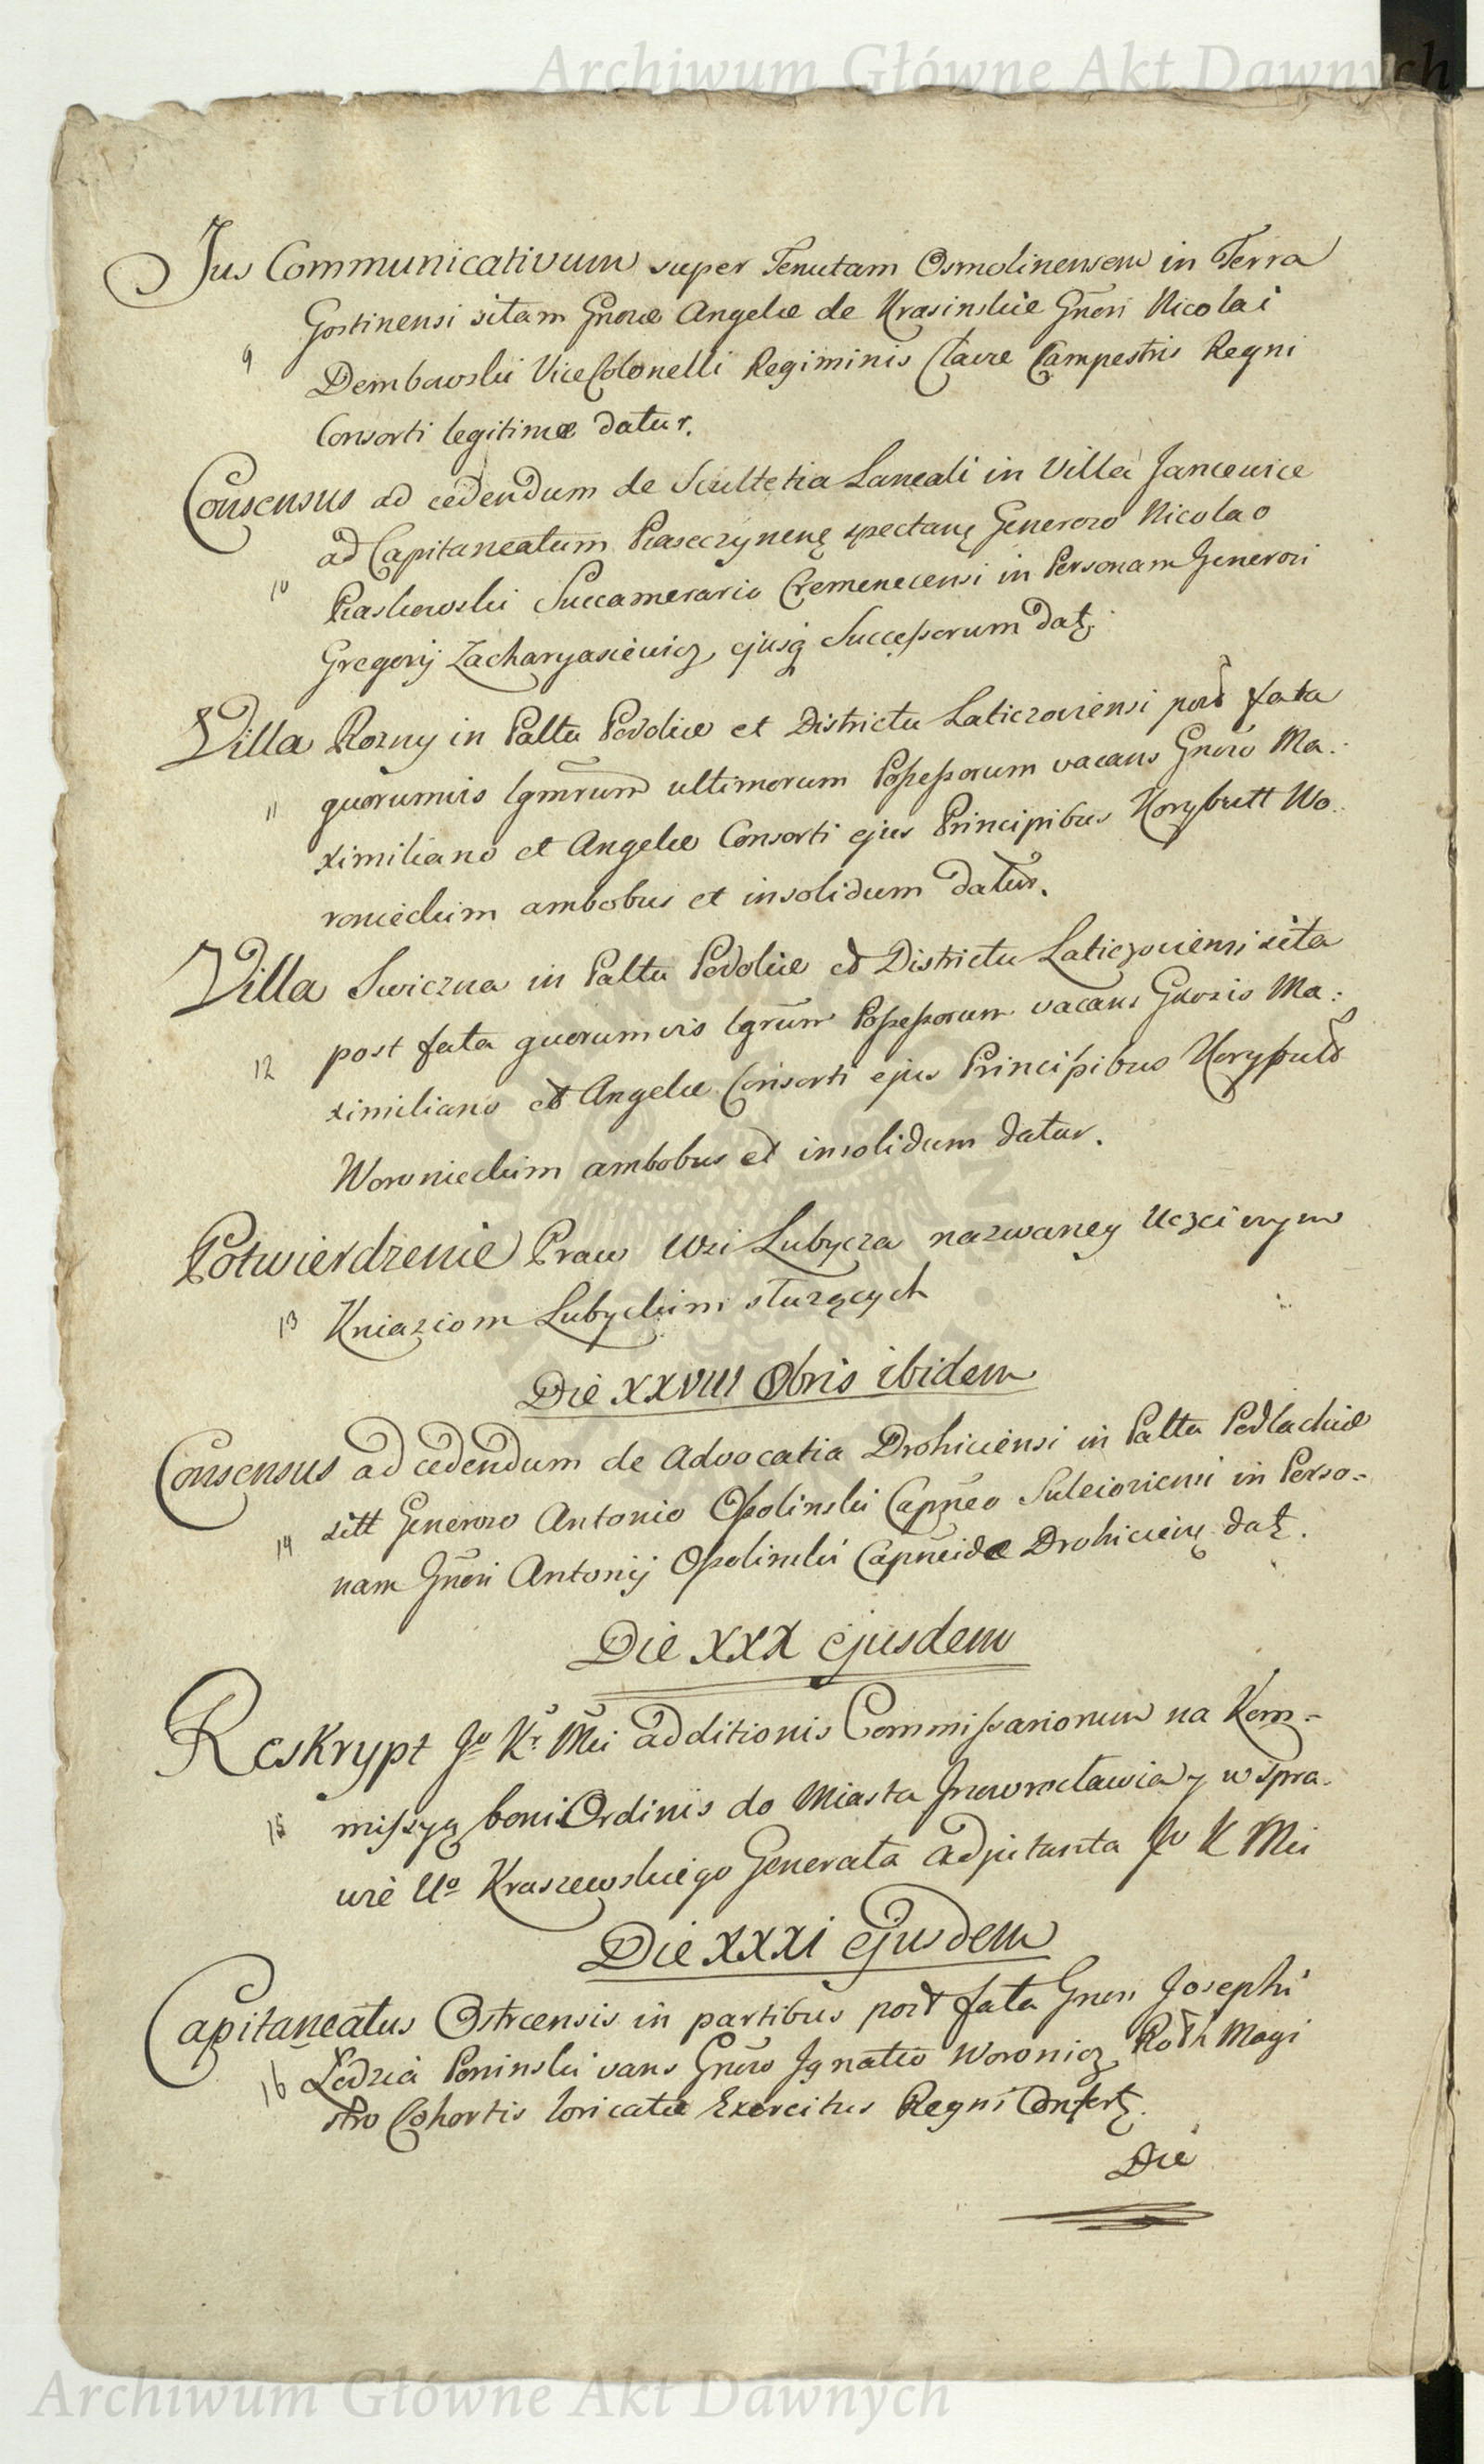 Archiwum Główne Akt Dawnych
Jus Communicativum super Tenutam Osmolinensem in Terra
Gostinensi sitam Gnosæ Angelæ de Krasinskie Gnosi Nicolai
9
Dembowski ViceColonelli Regiminis Clavæ Campestris Regni
Consorti legitimæ datur.
Consensus ad cedendum de Scultetia Laneali in Villa Jancewice
ad Capitaneatum Piaseczynen. spectan. Generoso Nicolao
10
Piaskowski Succamerario Cremenecensi in Personam Generosi
Gregorij Zacharyasiewicz, ejusq Successorum dat.
Villa Rozny in Paltu Podoliæ et Districtu Laticzoviensi post fata
11
quorumvis lgmrum ultimorum Possessorum vacans Gnoso Ma:
ximiliano et Angelæ Consorti ejus Principibus Korybutt Wo:
ronieckim ambobus et insolidum datur.
Villa Swiczna in Paltu Podoliæ et Districtu Laticzoviensi sita
12
post fata quorumvis lgrum Possessorum vacans Gnosis Ma:
ximiliano et Angelæ Consorti ejus Principibus Korybutt
Woronieckim ambobus et insolidum datur.
Potwierdzenie Praw Wsi Lubycza nazwaney Uczciwym
13
Kniaziom Lubyckim służących
Die XXVIII Obris ibidem
Consensus ad cedendum de Advocatia Drohiciensi in Paltu Podlachiæ
14
sitt Generoso Antonio Ossolinski Capneo Suleioviensi in Perso=
nam Gnosi Antonij Ossolinski Capneidæ Drohicien. dat.
Die XXX ejusdem
Reskrypt Jo Kr Mci additionis Commissariorum na Kom=
15
missyą boni Ordinis do Miasta Inowrocławia y w spra:
wie Uo Kraszewskiego Generała Adjutanta Jo K Mci
Die XXXI ejusdem
Capitaneatus Ostrcensis in partibus post fata Gnosi Josephi
16
Lodzia Poninski vans Gnoso Ignatio Woronicz Roth Magi
stro Cohortis loricatæ Exercitus Regni Confert.
Die
Archiwum Główne Akt Dawnych